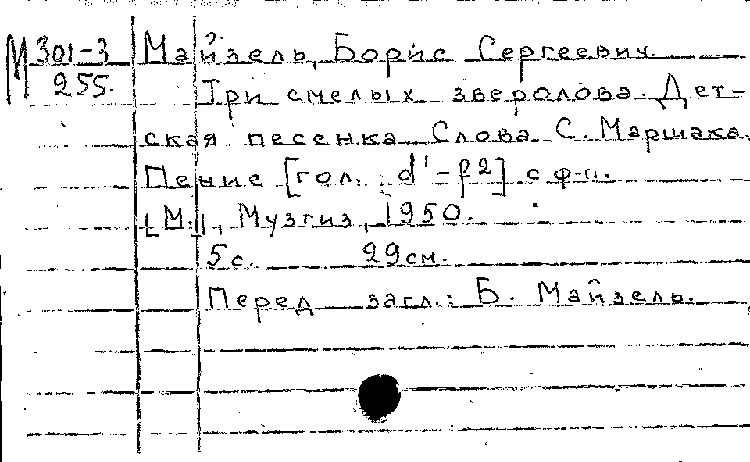 М 301-3 Майзель, Борис Сергеевич.
255. Три смелых зверолова. Дет-
ская песенка. Слова С. Маршака.
Пение [гол.: d¹-f2] с ф-п.
[М.], Музгиз, 1950.
5 с. 29 см.
Перед загл.: Б. Майзель.